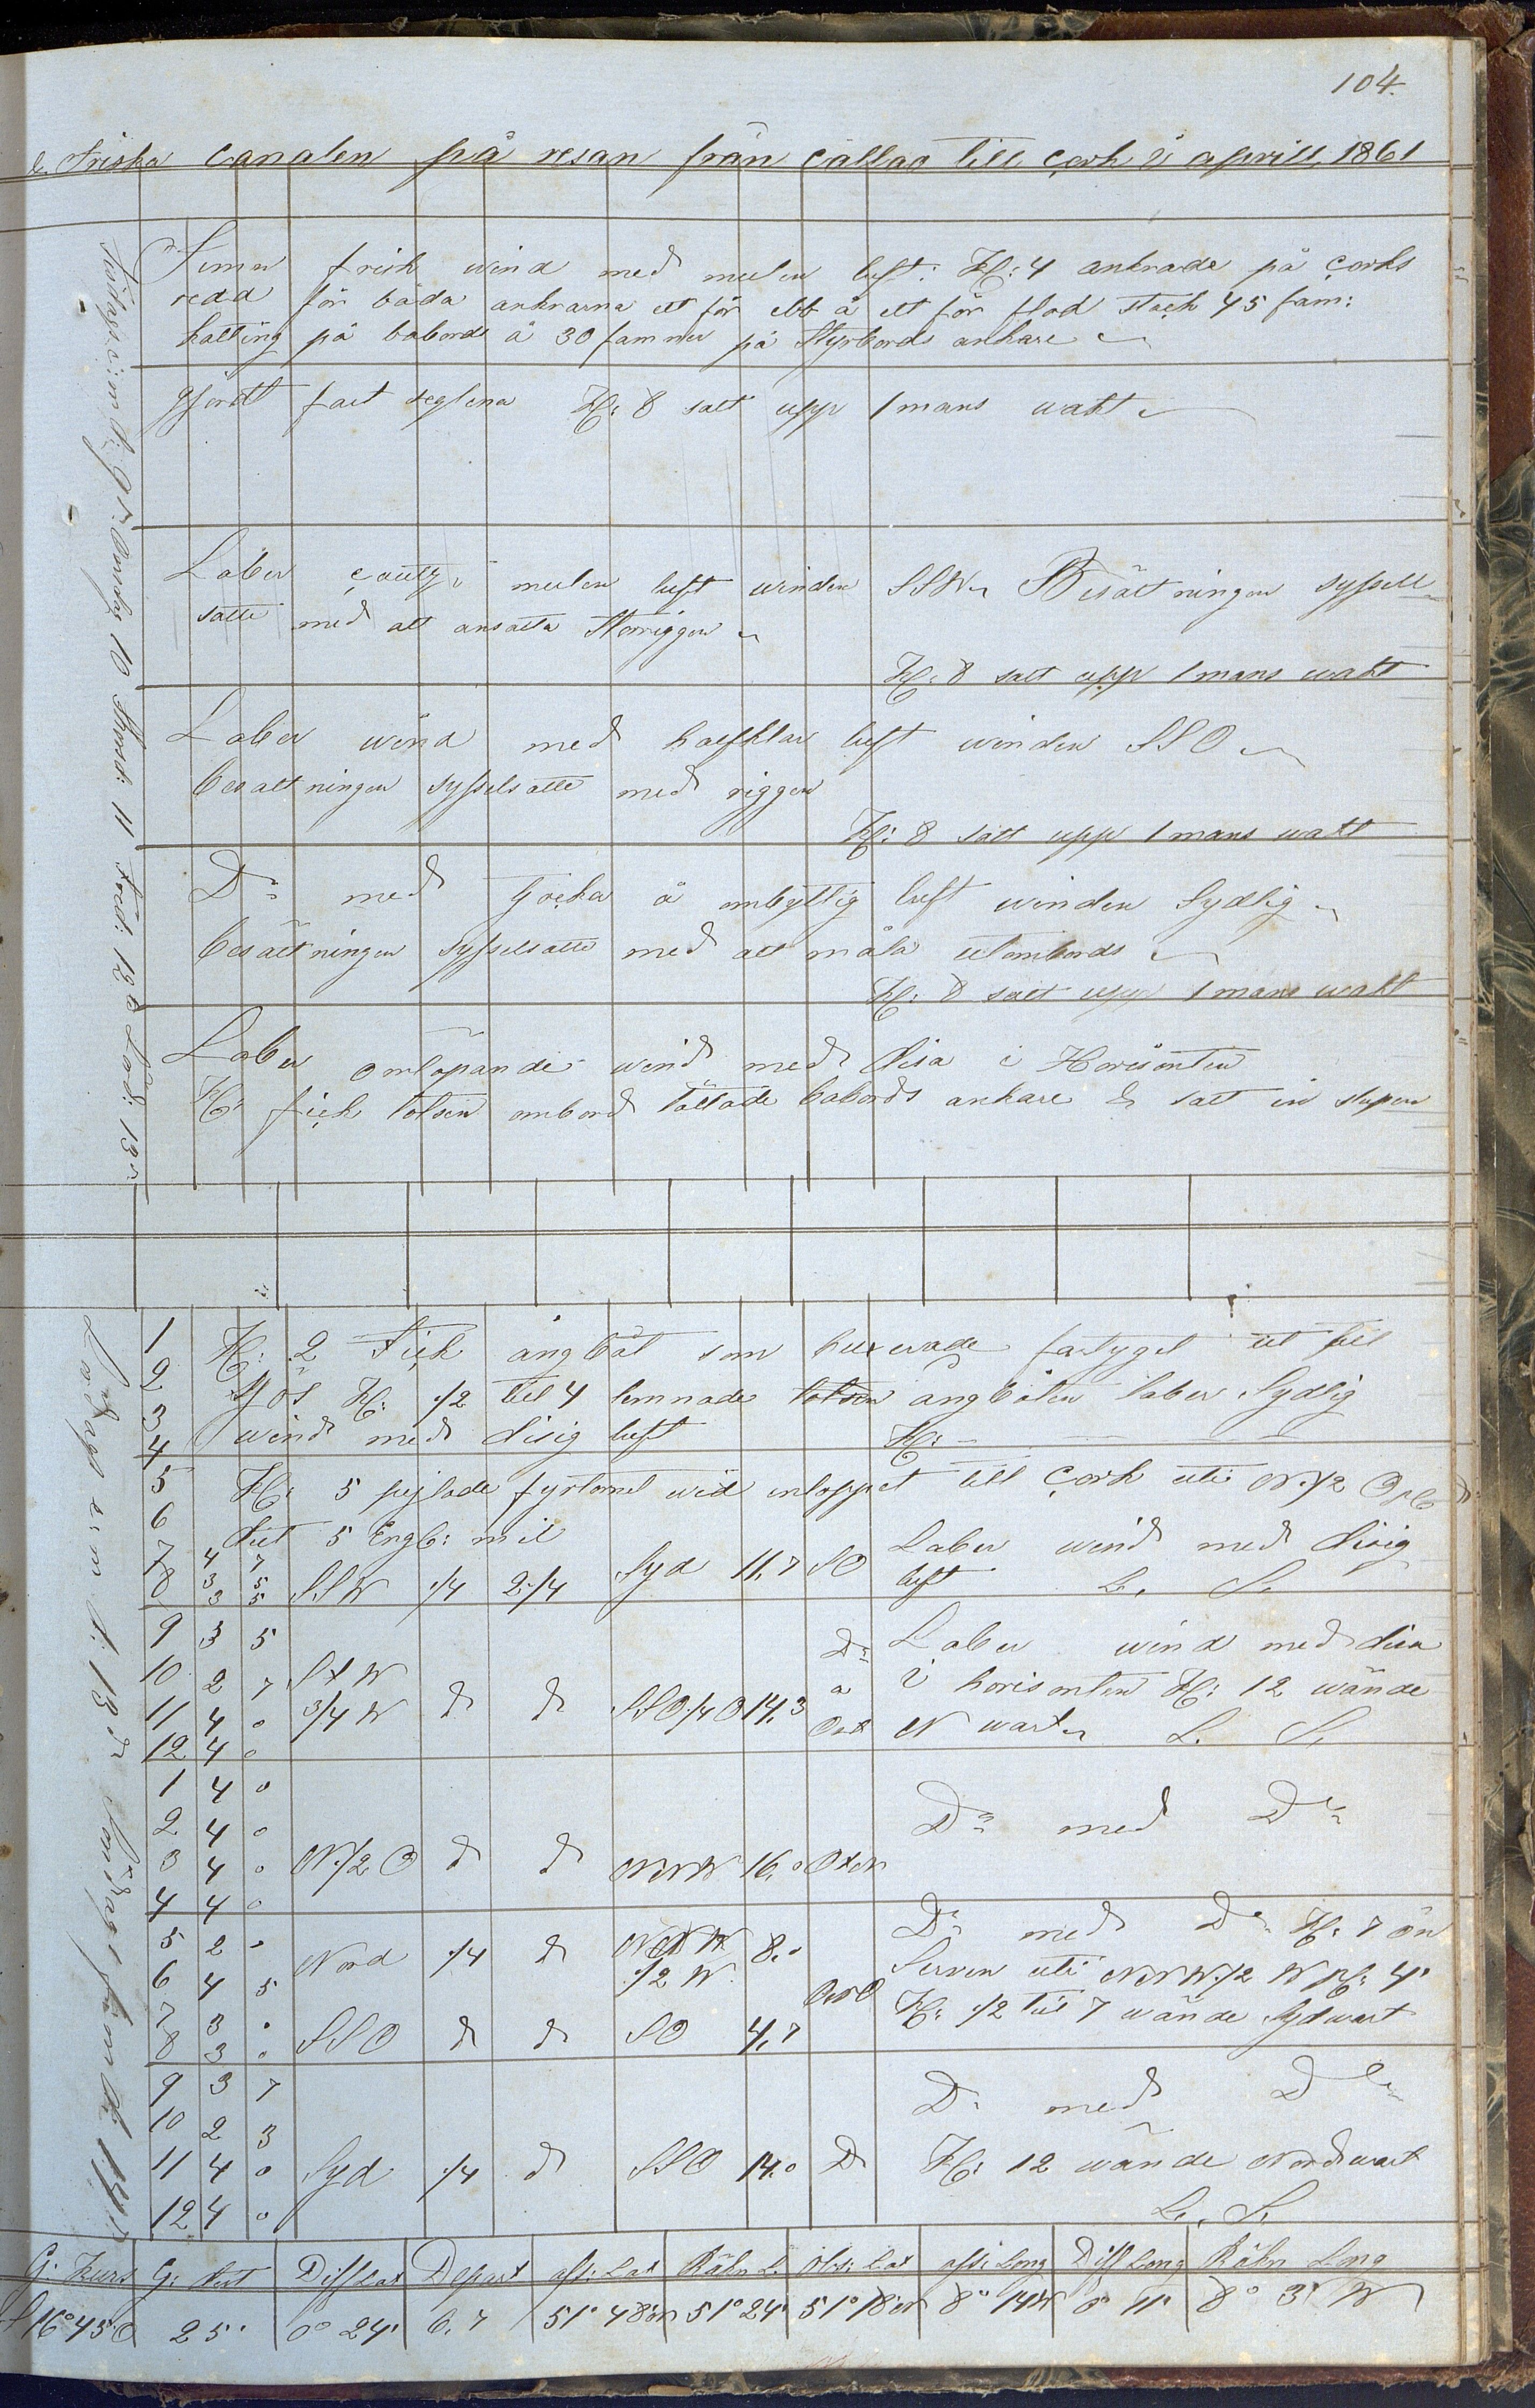 104.
Friska Canalen på resan från Callao till Cork i aprill 1861
Jemn frisk wind med mulen luft: Kl: 4 ankrade på Corks
redd för båda ankrarna ett för ebb å ett för flod stack 45 fam:
kätting på babord å 30 famner på Styrbords ankare
gjordt fast seglena Kl: 8 satt upp 1 mans wakt
Laber mulen luft winden SSW Besättningen syssell
satte med att ansätta Storriggen
Kl: 8 satt upp 1 mans wakt
Laber wind med halfklar luft winden SSO
besättningen sysselsatte med riggen
Kl: 8 satt upp 1 mans wakt
Do med tjocka å ombyttlig luft winden Sydlig
besättningen sysselsatte med att måla utombords
Kl: 8 satt upp 1 mans wakt
Laber omlöpande wind med disa i Horisonten
Kl: fick lotsen ombord lättade babords ankare & satt in slupen
1 Kl: 2 Fick ångbåt som buxerade fartyget ut till
2 Sjös Kl: 1/2 till 4 lemnade lotsen ångbåten laber Sydlig
3 wind med disig luft Kl:
4
5 Kl: 5 pejlade fyrtornet wid inloppet till Cork uti N 1/2 O
6 dist 5 Engl: mil
7 4 7 Laber wind med disig
8 3 5 SSW 1/4 2 1/4 Syd 11,7 SO luft L. S.
3 5
9 3 5 Do Laber wind med disa
10 2 7 StW a i horisonten Kl: 12 wände
11 4 0 3/4 W d d SSO 1/4 O 14,3 Ost N wart L. S.
12 4 0
1 4 0
2 4 0 Do med Do
3 4 0 N 1/2 O d d NNW 16,0 OtN
4 4 0
5 2 0 Nord 1/4 d 8,0 Do med Do Kl: 7 ön
6 4 5 1/2 W uti NNW 1/2 W
7 3 0 ONO Kl: 1/2 till 7 wände Sydwart
8 3 0 SSO d d SO 4,7
9 3 7 Do med Do
10 2 3
11 4 0 Syd 1/4 d SSO 14,0 D Kl: 12 wände Nordwart
12 4 0 L. S.
G: Kurs G: dist Diff Lat Depart aff: Lat Räkn L. Obs: Lat aff: Long Diff Long Räkn Long
S 16° 45' O 25' 0° 24' 6,7 51° 48' N 51° 24' 51° 18' N 8° 14' W 0° 11' 8° 3' W
Tisdags e:m d: 9 Onsdag 10 Thorsd: 11 Fred: 12 Lörd: 13
Lördags e:m d: 13 Söndags f:m d: 14